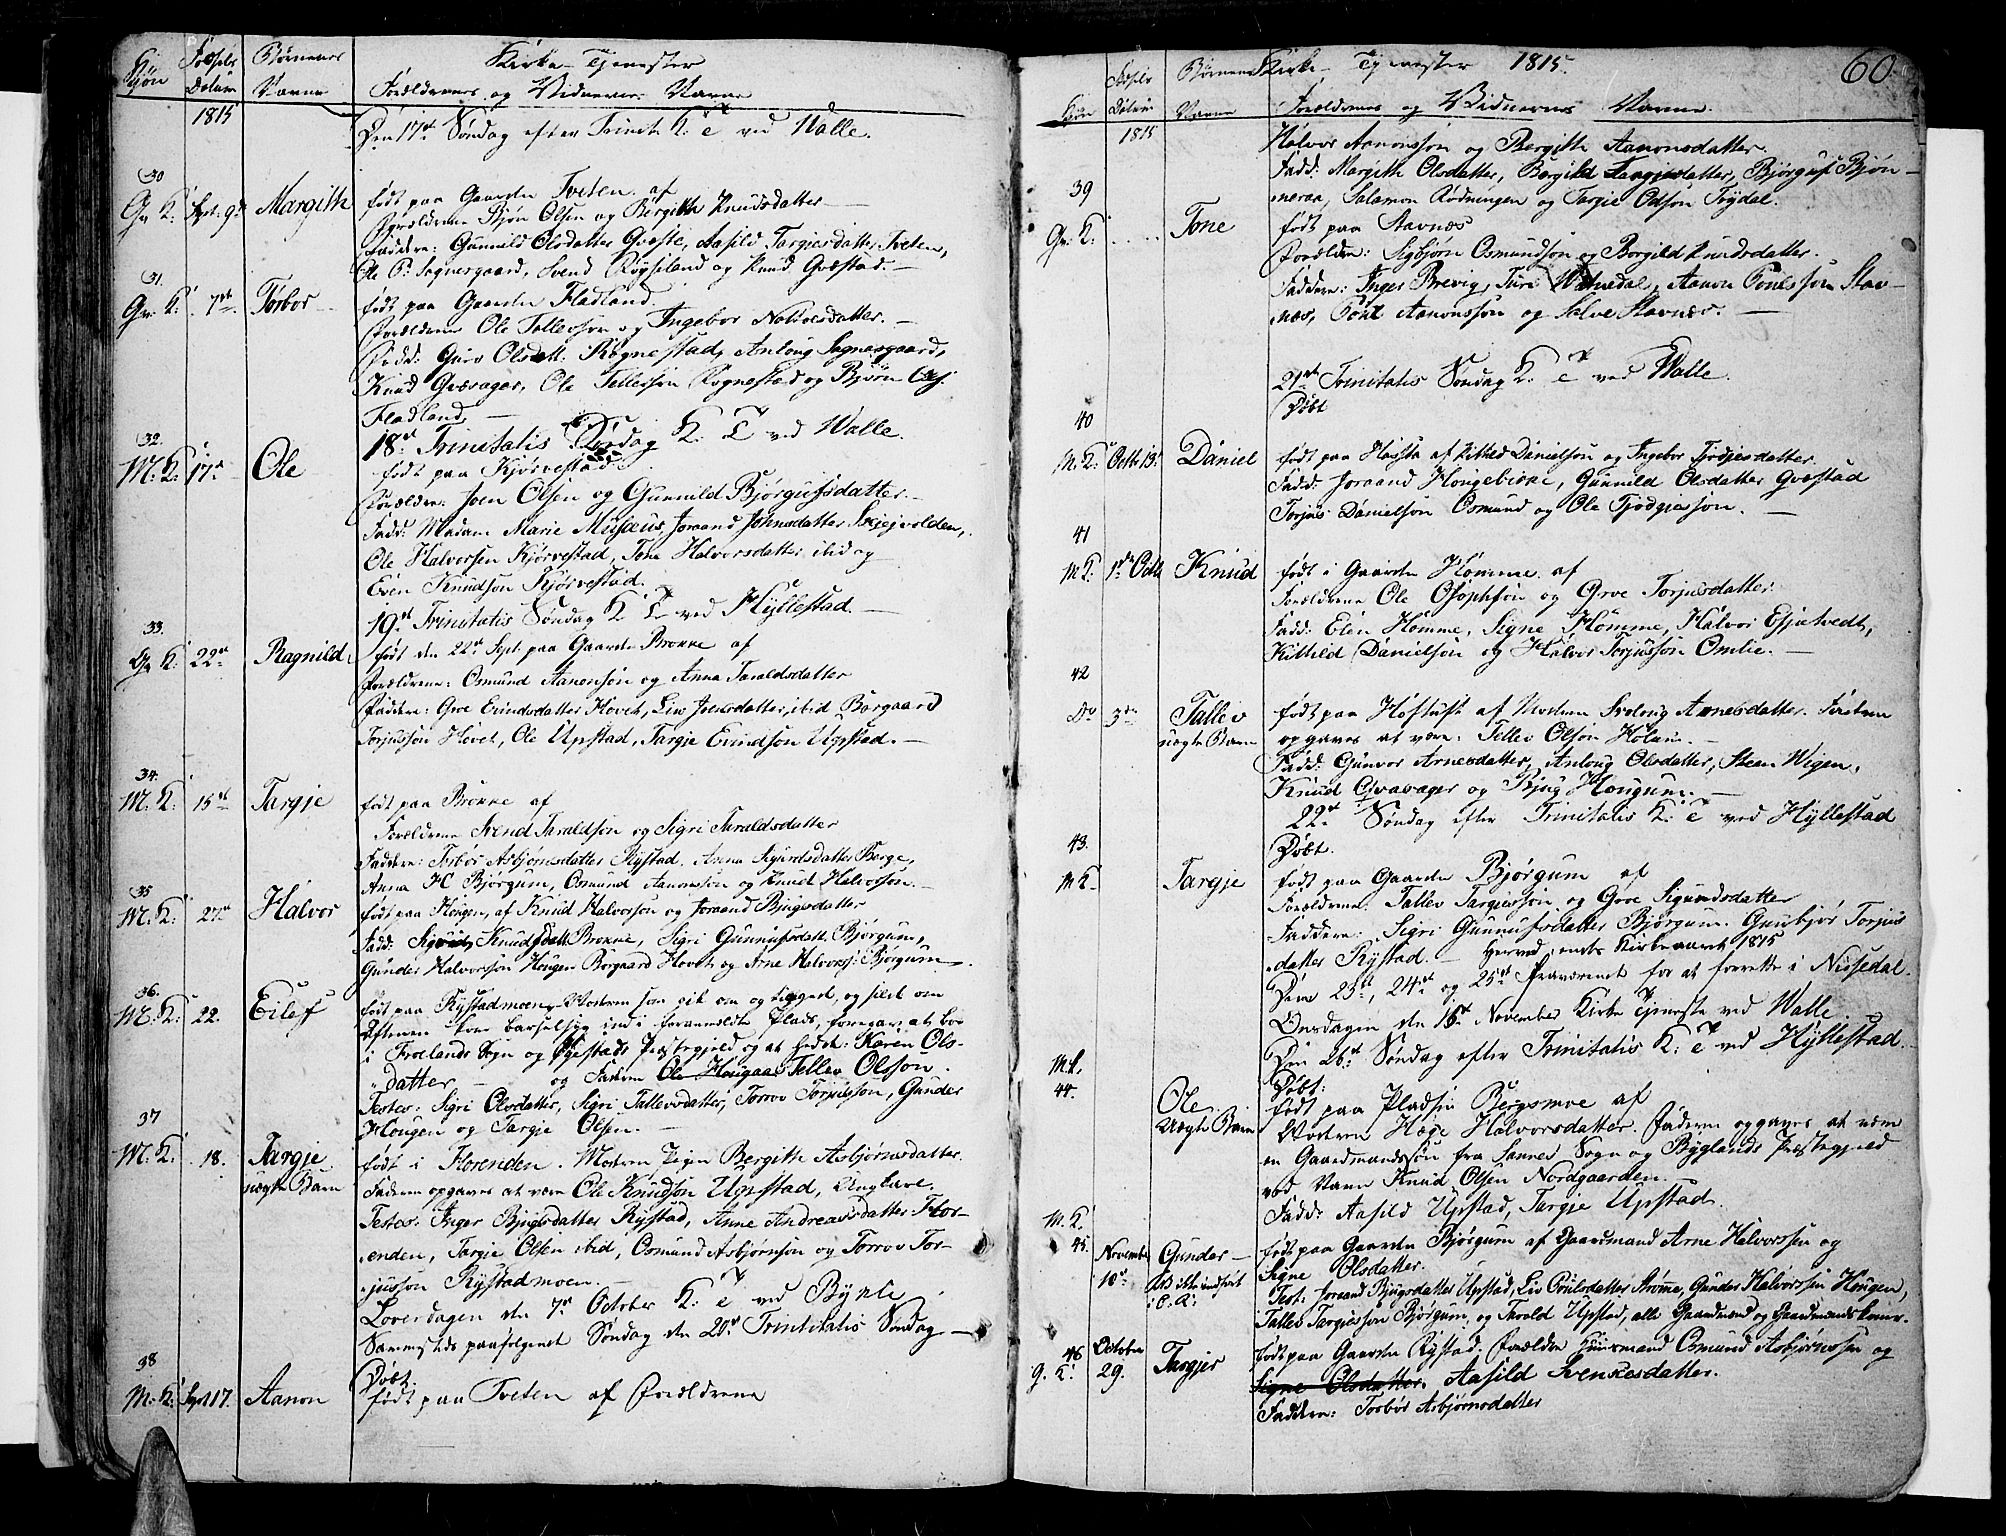 Kjøn Fødsels Datum Børnenes Navne Kirke-Tjenester Forældrenes og Vidnernes Navne
1815
Den 17de Søndag efter Trinit K: T ved Walle.
30
Qv K: Sept. 9de Margith født paa Gaarden Tveten af
Forældrene Bjøn Olsen og Bergith Knudsdatter
Faddere: Gunnild Olsdatter Qvæste, Aasild Targiesdatter Tveten,
Ole P: Sognesgaard, Svend Røyseland og Knud Qvæstad.
31.
Qv. K: 7de Torbor født paa Gaarden Fladland.
Forældrene Ole Tallevson og Ingebor Notvolsdatter.
Fadd: Guro Olsdatt. Rognestad, Anlong Sognesgaard,
Knud Qvævager, Ole Tellefson Rognestad og Bjørn
Fladland
18de Trinitatis Søndag K: T ved Walle.
32.
M: K: 17de Ole født paa Kjørvestad
Forældre: Joen Olsen og Gunnild Bjørgufsdatter.
Fadd: Madam Marie Musæus, Joraand Johnsdatter Skjejvolden,
Ole Halvorsen Kjørvestad, Tone Halvorsdatter ibid og
Even Knudson Kjørvestad.
19de Trinitatis Søndag K: T ved Hyllestad
33.
Qv K: 22de Ragnild født den 22de Sept. paa Gaarden Brokke af
Forældrene: Osmund Aanonsøn og Anna Taraldsdatter
Faddere: Groe Evindsdatter Hovet, Liv Joensdatter, ibid Borgaard
Torjussøn Hovet, Ole Upstad, Targje Evindsøn Upstad.
34.
M. K: 15de Targje født paa Brokke af
Forældrene Svend Taraldsøn og Sigri Taraldsdatter
Faddere: Torbor Asbjørnsdatter Rystad. Anna Sigurdsdatter Berge,
Anna K Bjørgum, Osmund Aanonsøn og Knud Halvorsøn.
35
M. K: 27de Halvor født paa Hougen, af Knud Halvorsøn og Joraand Bjugsdatter
Fadd: Sigrid Knudsdatt. Brokke, Sigri Gunnufsdatt. Bjørgum,
Gunder Halvorsøn Hougen Borgaard Hovet og Arne Halvorss: Bjørgum
36.
M: K: 22. Eilef født paa Rystadmoen, Moderen som gik om og tigged, og sildt om
Aftenen kom barselsyg ind i foranmeldte Plads, foregav, at boe
i Froelands Sogn og Øyestads Præstegjeld og at hedde: Karen Ols-
datter og Faderen Ole Hougaas Tellev Olsson.
Testes: Sigri Olsdatter, Sigri Tallevsdatter, Torrov Torjussøn, Gunder
Hougen og Targje Olsen.
37
M. K: 18. Targje uægte Barn født i Florenden. Moderen Pigen Bergith Asbjørnsdatter.
Faderen opgaves at være Ole Knudsøn Upstad, Ungkarl.
Testes: Inger Bjugsdatter Rystad, Anne Andreasdatter Flor-
enden, Targie Olsen ibid, Osmund Asbjørnsøn og Torrov Tor-
jussøn Rystadmoen.
Løverdagen den 7de October K: T ved Bykle
Sammesteds paafølgende Søndag den 20de Trinitatis Søndag
38
Døbt
M: K: Sept 17. Aanon født paa Tveten af Forældrene
60
Kjøn Fødsels Datum Børnenes Navne Kirke-Tjenester 1815. Forældrenes og Vidnernes Navne
1815
Halvor Aanonssøn og Bergith Aanonsdatter.
Fadd: Margith Olsdatter, Borgild Targiesdatter, Bjørguf Bjøn-
neraa, Salamon Rødningen og Targie Odson Trydal.
39
Qv: K: Tone født paa Stavnæs
Forældre: Sigbjørn Osmundsøn og Borgild Knudsdatter.
Faddere: Inger Brevig, Turi Watnedal, Aanon Poulssøn Stav-
næs, Poul Aanonssøn og Salve Stavnæs.
21de Trinitatis Søndag K: T ved Walle.
Døbt
40
M: K: Octb 13. Daniel født paa Harstad af Kittild Danielsøn og Ingebor Tjødgiesdatter
Fadd: Joraand Hougebirke, Gunnild Olsdatter Qvæstad
Torjus Danielsøn Osmund og Ole Tjødgiessøn.
41
M K: 1de Octb Knud født i Gaarden Homme af
Forældrene Ole Osophsøn og Groe Torjusdatter.
Fadd: Elen Homme, Signe Homme, Halvor Esjetvedt,
Kittild Danielsøn og Halvor Torjussøn Omlie.
42
Do 3de Tallev uægte Barn født paa Hoftuft af Moderen Svalong Arnesdatter. Faderen
opgaves at være: Tellev Olson Holum.
Fadd: Gunvor Arnesdatter, Anlong Olsdatter, Steen Wigen,
Knud Qvavager og Bjug Hougum.
22de Søndag efter Trinitatis K: T ved Hyllestad
43.
Døbt.
M K: Targje født paa Gaarden Bjørgum af
Forældrene: Tallev Targiessøn og Groe Sigurdsdatter
Faddere: Sigri Gunnufsdatter Bjørgum. Gunbjør Torjus
datter Rystad. Herved endte Kirkeaaret 1815
Den 23de, 24de og 25de fraværende for at forrette i Nissedal.
Onsdagen den 15de November Kirke Tjeneste ved Walle.
Den 26de Søndag efter Trinitatis K: T ved Hyllestad.
M. K. 44.
Døbt:
Ole Uægte Barn født paa Pladsen Bergsmoe af
Moderen Hæge Halvorsdatter. Faderen opgaves at være
en Gaardmandssøn fra Sannes Sogn og Byglands Præstegjeld
ved Navn Knud Olsen Nordgaarden.
Fadd: Aasild Upstad, Targje Upstad.
M. K. 45.
Novembr 10de Gunder født paa Gaarden Bjørgum af Gaardmand Arne Halvorssen og
Signe Olsdatter.
Test: Joraand Bjugsdatter Upstad, Liv Poulsdatter Strømme, Gunder Halvorssøn Hougen,
Tallev Targiessøn Bjørgum, og Tarald Upstad, alle Gaardmænd og Gaardmandskoner.
46 October
q. K: 29. Targjer født paa Gaarden Rystad. Forældre Huusmand Osmund Asbjørnssen og
Signe Olsdatter. Aasild Svenkesdatter.
Faddere: Torbor Asbjørnsdatter